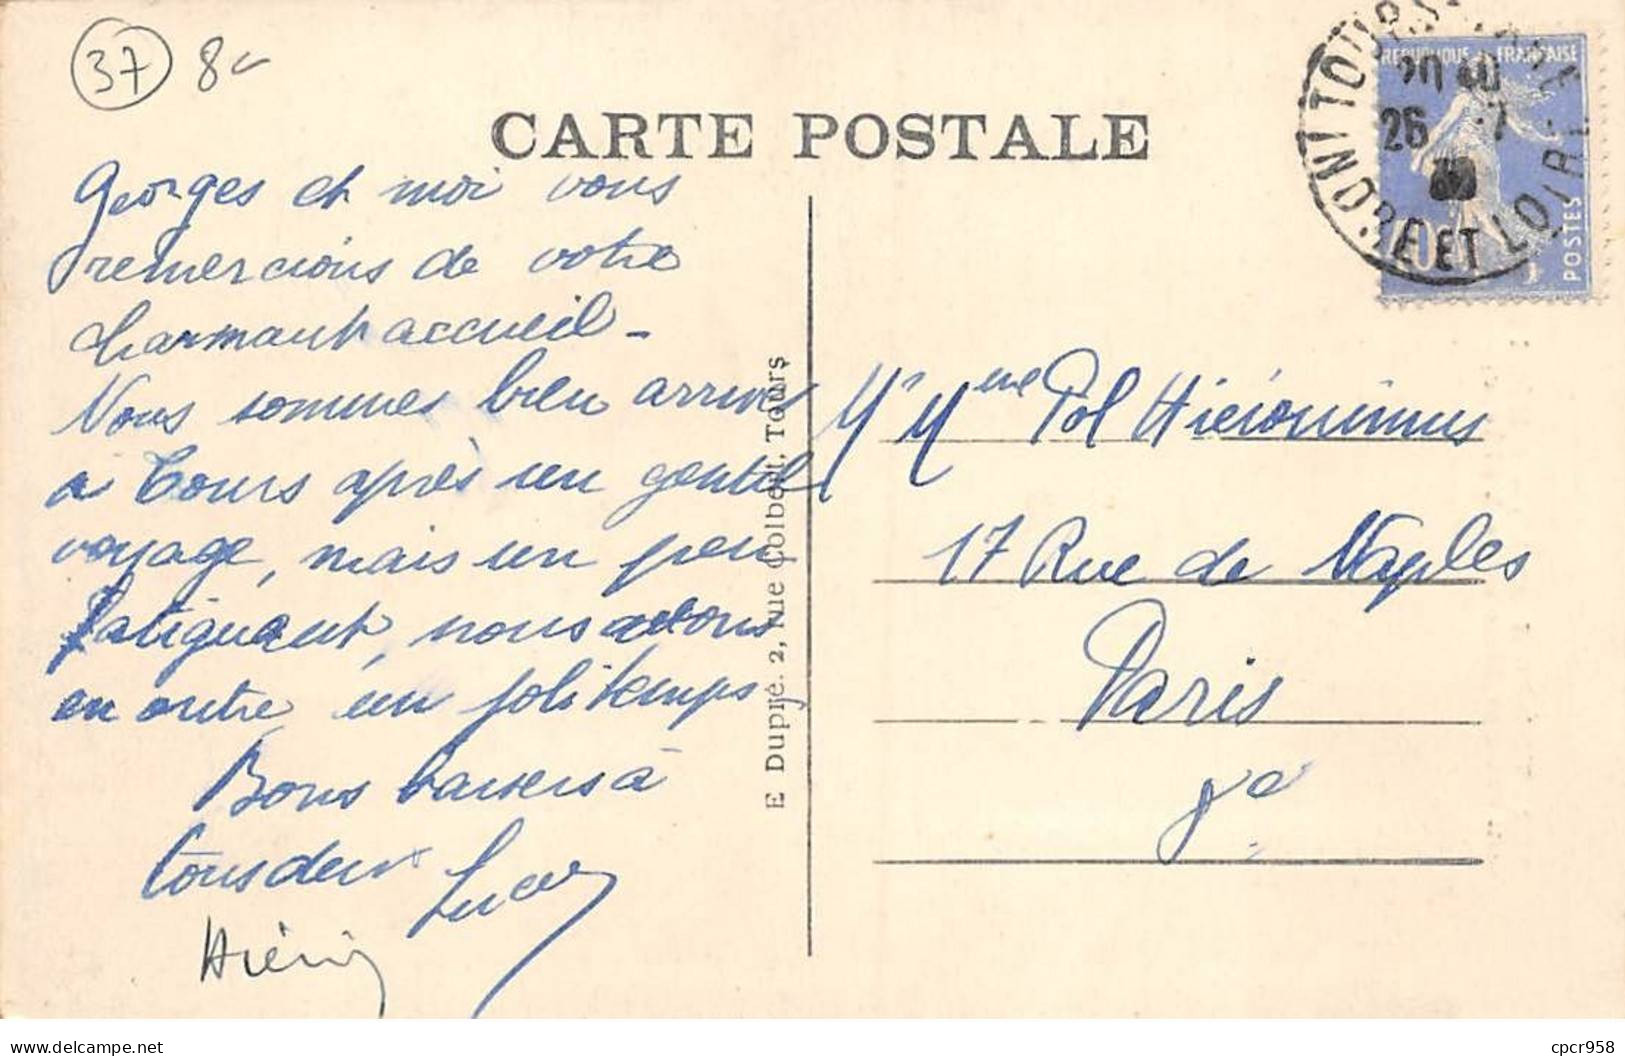 37 8
CARTE POSTALE
Georges et moi vous
remercions de votre
charmant accueil -
Nous sommes bien arrivés
à Tours après un gentil
voyage, mais un peu
fatiguant, nous avons
en outre un joli temps
Bons baisers à
tous deux
E Dupré. 2, rue Colbert, Tours
REPUBLIQUE FRANCAISE
POSTES
26 7
INDRE ET LOIRE
Mr Mme Pol Hiéronimus
17 Rue de Naples
Paris
8e
delcampe.net
cpcr958